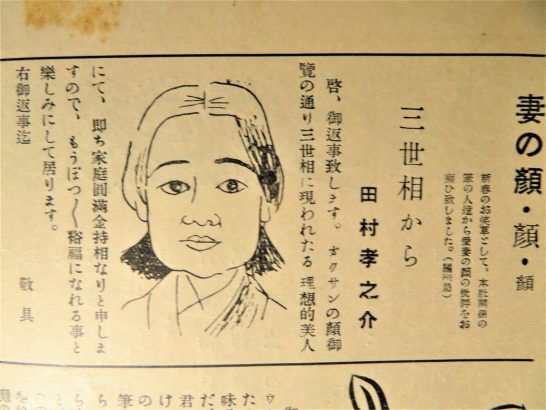 妻の顔・顔・顔
新春のお便草として、本社関係の
筆の人達から愛妻の顔の批評をお
願ひ致しました。（編輯局）
三世相から
田村孝之介
啓、御返事致します。オクサンの顔御
覽の通り三世相に現われたる理想的美人
にて、即ち家庭圓満金持相なりと申しま
すので、もうぼつ〳〵裕福になれる事と
樂しみにして居ります。
右御返事迄
敬具